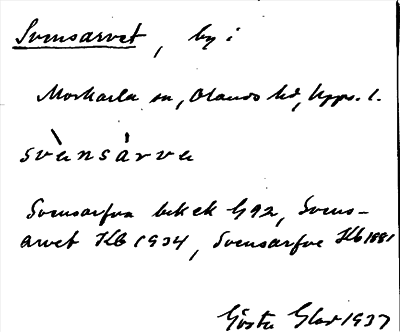 Svensarvet, by i
Morkarla sn, Olands hd, Upps. l.
svènsárva
Svensarfva bek ek G 92, Svens-
arvet Kb 1934, Svensarfve Hb 1881
Gösta Glad 1937